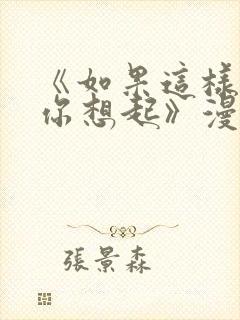 《如果這樣
你想起》漫
張景森